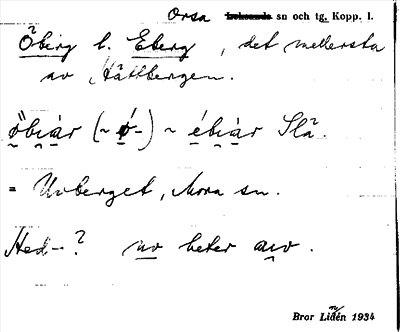 Orsa Leksands sn och tg, Kopp. l.
Öberg l. Eberg, det mellersta
av Hättbergen.
öbıár (~ ǿ-) ~ ébıàr Slå.
= Uvberget, Mora sn.
Hed-? uv heter auv.
Bror Lidén 1934